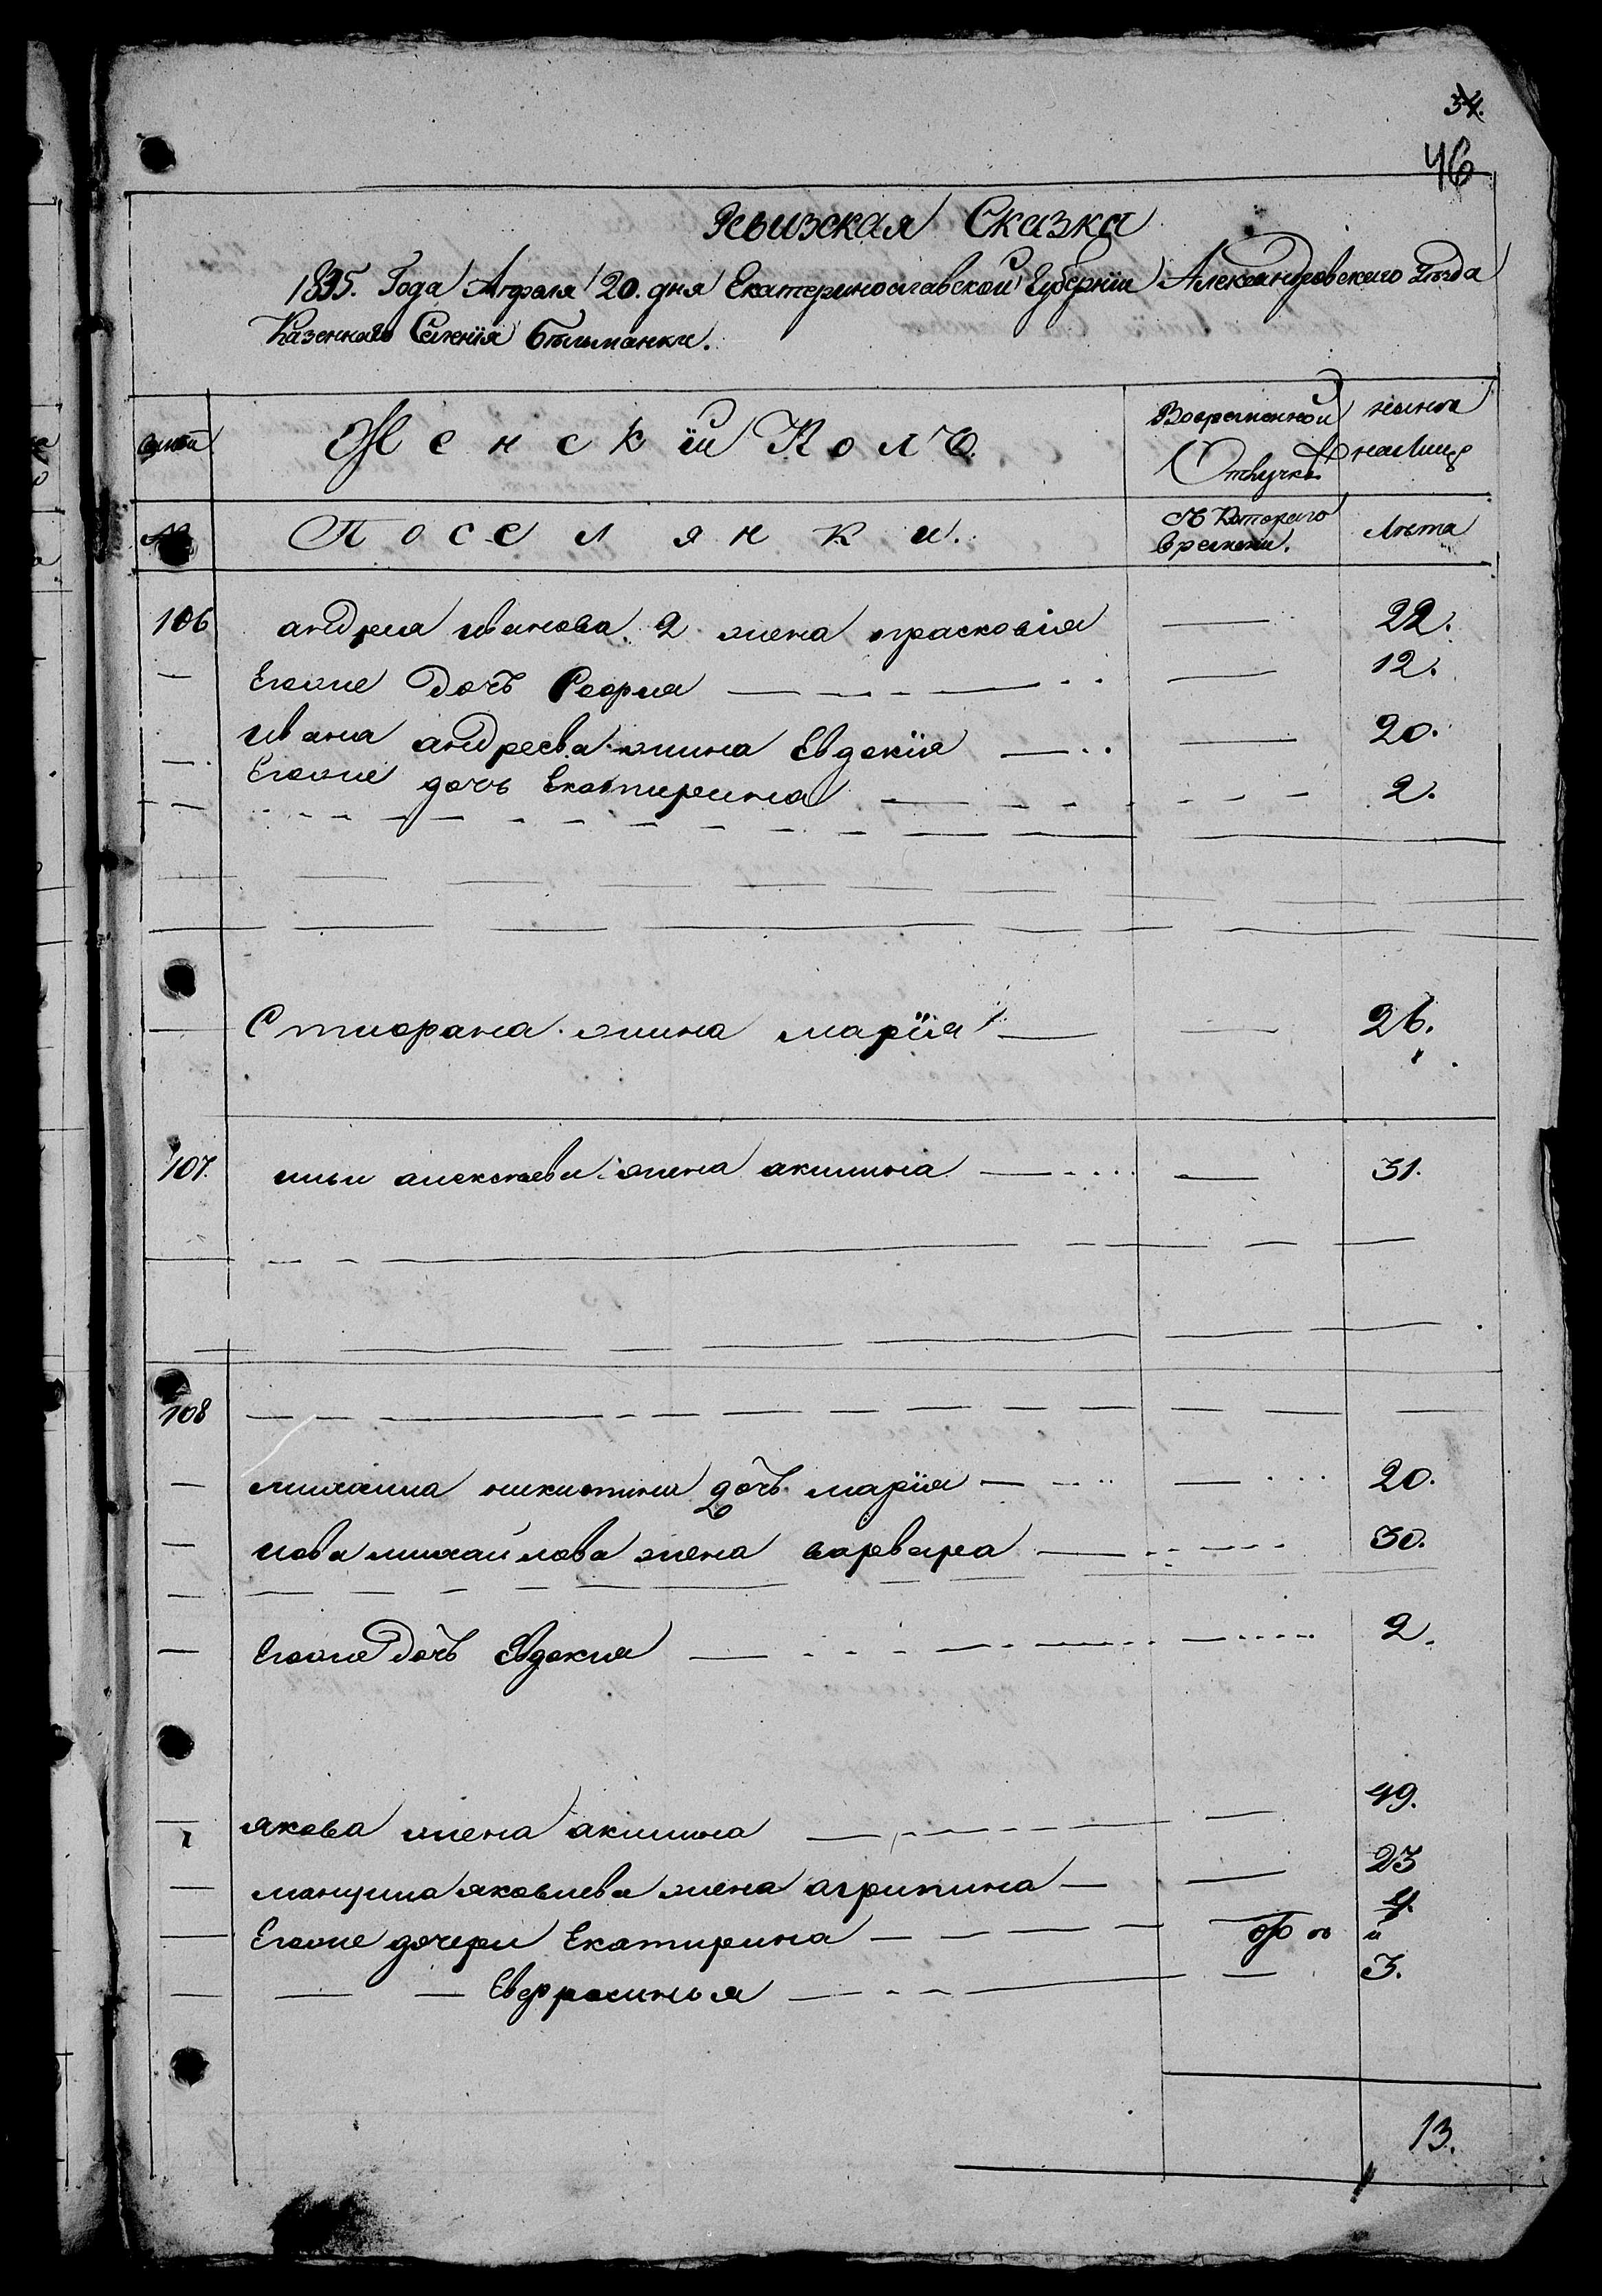 34.
46
Ревизская Сказка
1835. Года Апреля 20. дня Екатеринославской Губернїи Александровскаго Уѣзда
Казеннаго Селенїя Бѣльманки.
семей
Женскїй Полъ.
Вовременной Отлучкѣ
нынѣ налице
№
Поселянки.
Съ Котораго времени.
Лѣта
106 андрея иванова 2 жена прасковія — 22.
— Егоже дочъ София — 12.
— ивана андреева жина Евдокїя — 20.
— Егоже дочь Екатирина — 2.
— Стиофана жина марїя — 26.
107. ильи алексѣева жена акилина — 31.
108
— михаила никитина дочъ марїя — 20.
— иова михайлова жена варвара — 30.
— Егоже дочъ Евдокия — 2.
— якова жена акилина — 49.
— мануила яковлева жена агрипина — 23
— Егоже дочери Екатирина — 4.
— — — Евфросинья — 3.
13.